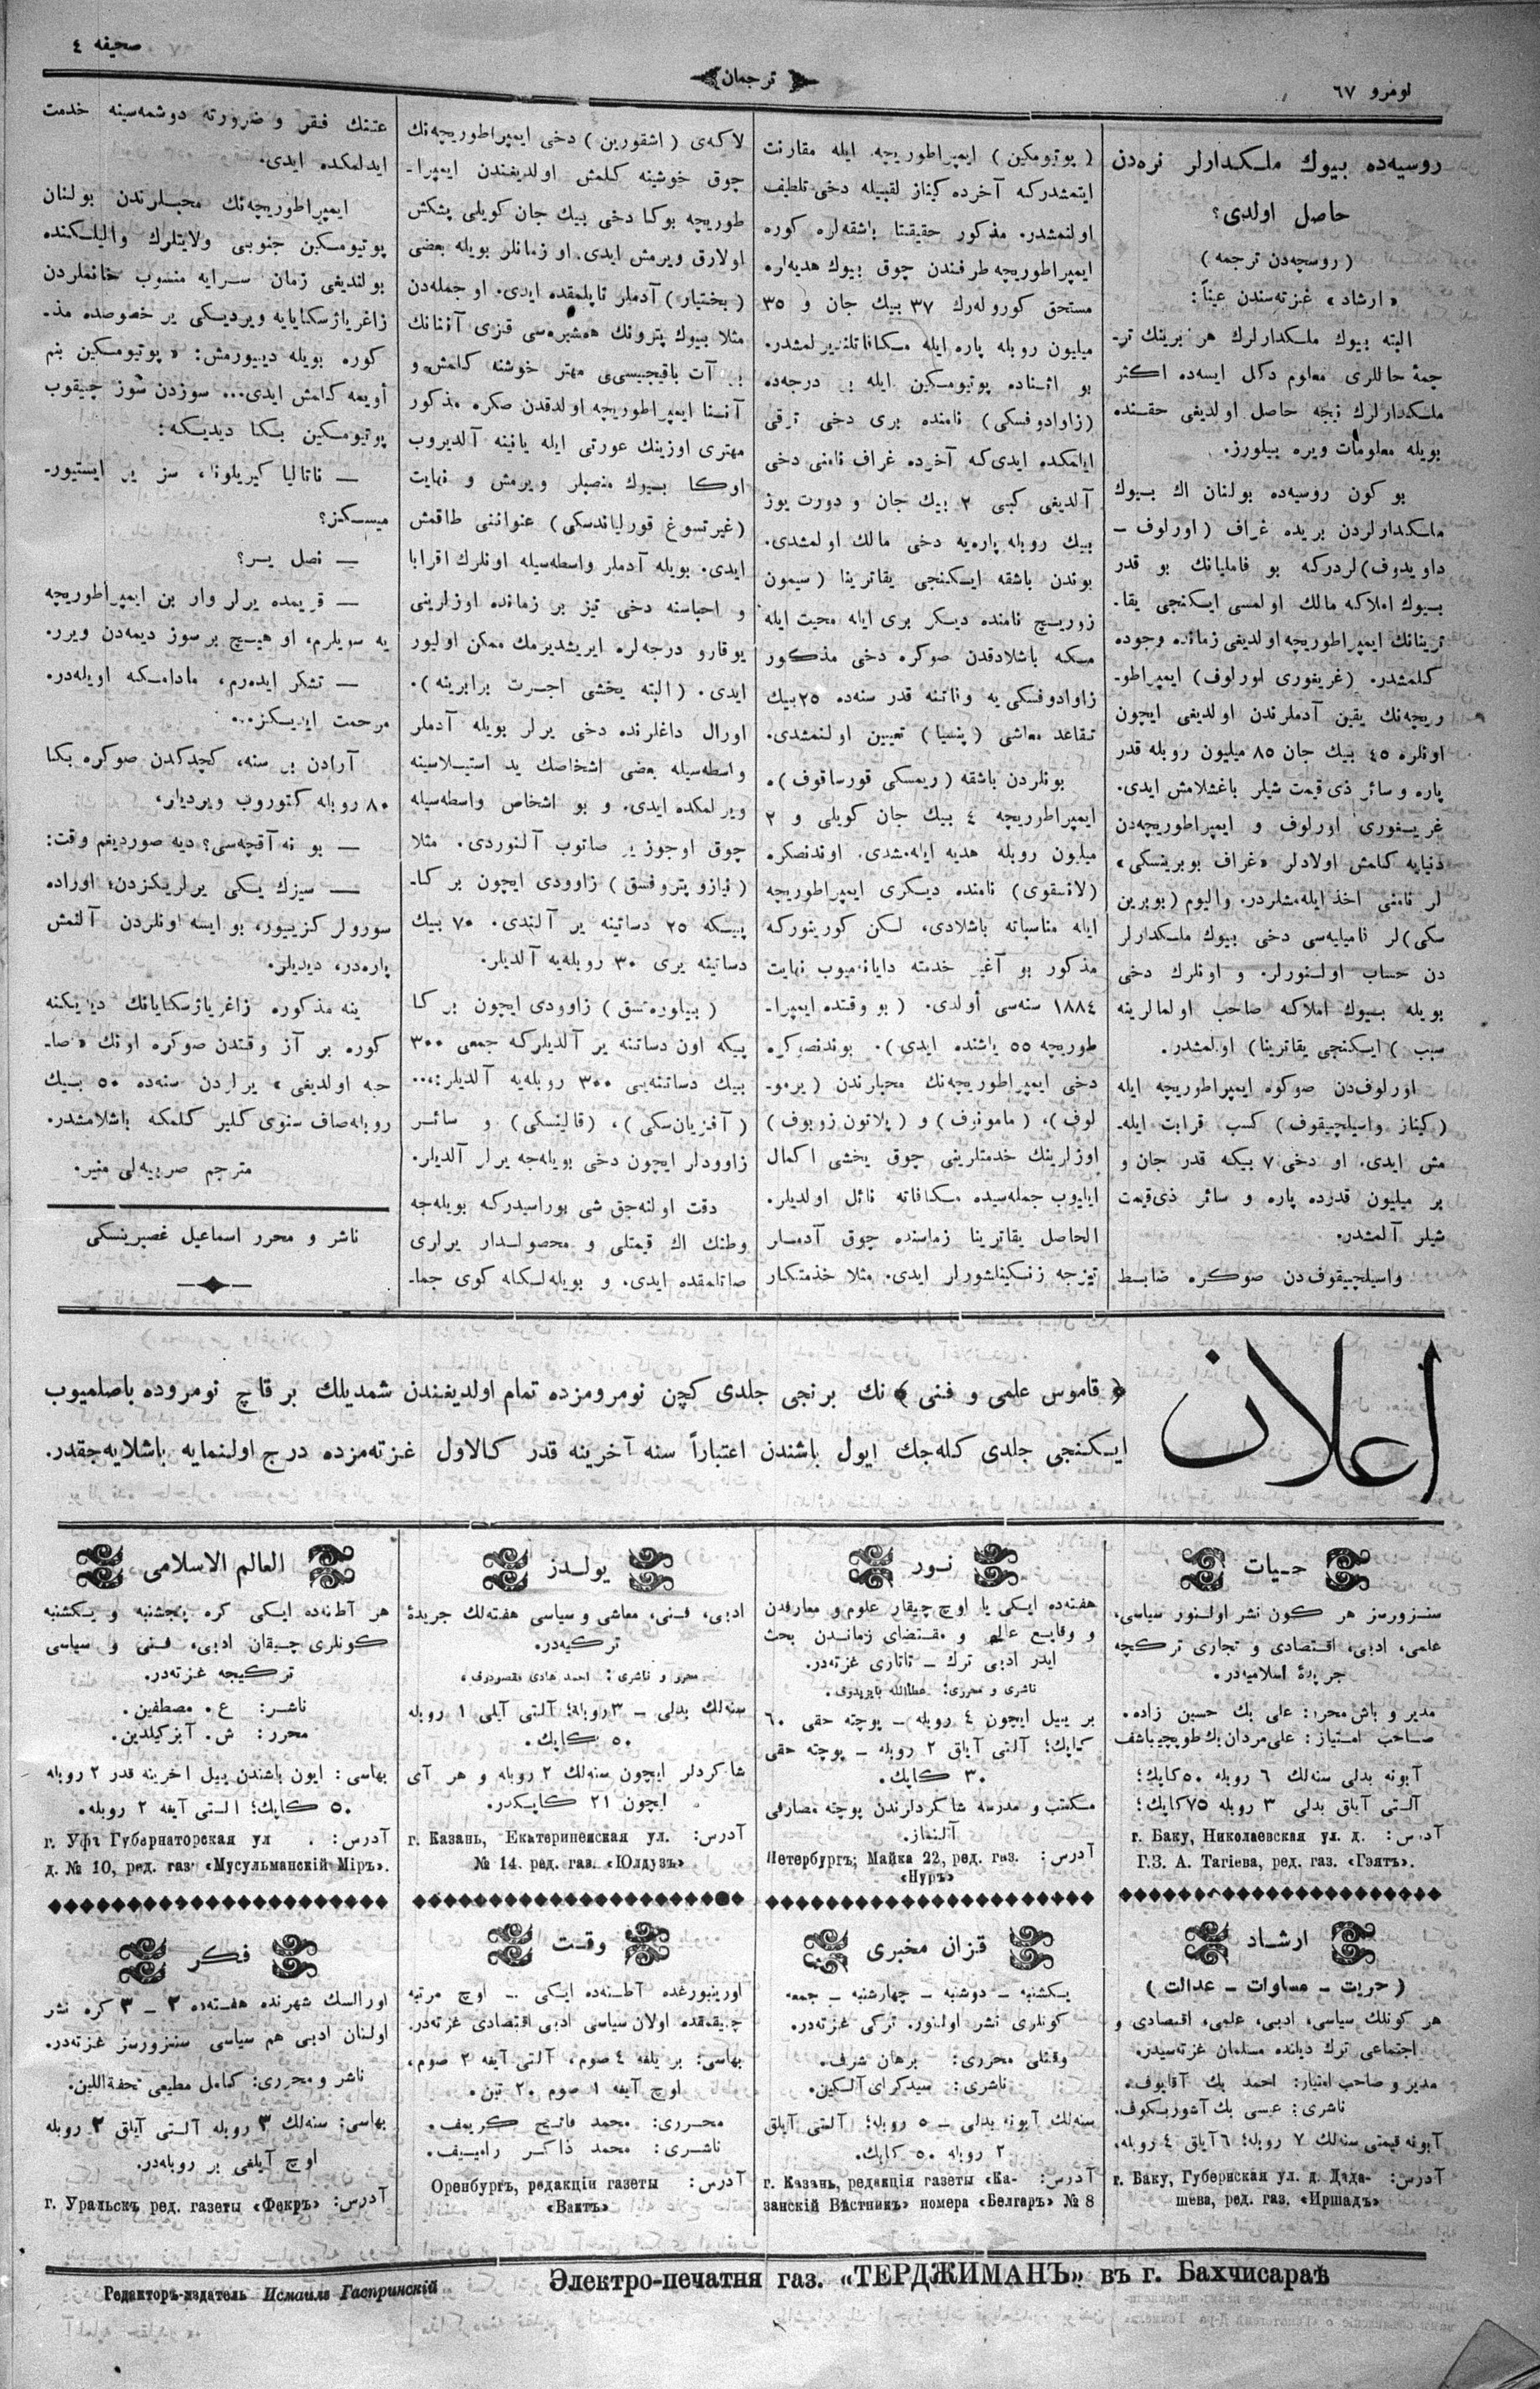 نومرو ٦٧
ترجمان
صحيفه ٤
روسيه‌ده بيوك ملكدارلر نره‌دن
حاصل اولدى؟
( روسچه‌دن ترجمه )
«ارشاد» غزته‌سندن عيناً:
البته بيوك ملكدارلرك هر برينك تر-
جمهٔ حاللرى معلوم دكل ايسه‌ده اكثر
ملكدارلرك نيجه حاصل اولديغى حقنده
بويله معلومات ويره بيلورز.
بو كون روسيه‌ده بولنان اك بيوك
ملكدارلردن بريده غراف (اورلوف -
داويدوف)لردركه بو فاميليانك بو قدر
بيوك املاكه مالك اولمسى ايكنجى يقا-
ترينانك ايمپراطوريچه اولديغى زمانده وجوده
كلمشدر. (غريغورى اورلوف) ايمپراطو-
ريچه‌نك يقين آدملرندن اولديغى ايچون
اونلره ٤٥ بيك جان ٨٥ ميليون روبله قدر
پاره و سائر ذى قيمت شيلر باغشلامش ايدى.
غريغورى اورلوف و ايمپراطوريچه‌دن
دنيايه كلمش اولادلر «غراف بوبرينسكى»
لر نامنى اخذ ايله‌مشلردر. واليوم (بوبرين
سكى)لر فاميليه‌سى دخى بيوك ملكدارلر
دن حساب اولنورلر. و اونلرك دخى
بويله بيوك املاكه صاحب اولمالرينه
سبب (ايكنجى يقاترينا) اولمشدر.
اورلوف‌دن صوكره ايمپراطوريچه ايله
(كيناز واسيلچيقوف) كسب قرابت ايله-
مش ايدى. او دخى ٧ بيكه قدر جان و
بر ميليون قدرده پاره و سائر ذى‌قيمت
شيلر آلمشدر.
واسيلچيقوف‌دن صوكره ضابط
(پوتيومكين) ايمپراطوريچه ايله مقارنت
ايتمشدركه آخرده كيناز لقبيله دخى تلطيف
اولنمشدر. مذكور حقيقتا باشقه‌لره كوره
ايمپراطوريچه طرفندن چوق بيوك هديه‌لره
مستحق كوروله‌رك ٣٧ بيك جان و ٣٥
ميليون روبله پاره ايله مكافاتلنديرلمشدر.
بو اثناده پوتيومكين ايله بر درجه‌ده
(زاوادوفسكى) نامنده برى دخى ترقى
ايلمكده ايدى‌كه آخرده غراف نامنى دخى
آلديغى كبى ٢ بيك جان و دورت يوز
بيك روبله پاره‌يه دخى مالك اولمشدى.
بوندن باشقه ايكنجى يقاترينا (سيمون
زوريچ نامنده ديكر برى ايله محبت ايله
مكه باشلادقدن صوكره دخى مذكور
زاوادوفسكى يه وفاتنه قدر سنه‌ده ٢٥ بيك
تقاعد معاشى (پنسيا) تعيين اولنمشدى.
بونلردن باشقه (ريمسكى قورساقوف)ه
ايمپراطوريچه ٤ بيك جان كويلى و ٢
ميليون روبله هديه ايله‌مشدى. اوندنصكره
(لانسقوى) نامنده ديكرى ايمپراطوريچه
ايله مناسباته باشلادى، لكن كورينوركه
مذكور بو آغير خدمته دايانه‌ميوب نهايت
١٨٨٤ سنه‌سى أولدى. (بو وقتده ايمپرا-
طوريچه ٥٥ ياشنده ايدى). بوندنصوكره
دخى ايمپراطوريچه‌نك محبلرندن (يرمو-
لوف)، (مامونوف) و (پلاتون زوبوف)
اوزلرينك خدمتلرينى چوق يخشى اكمال
ايليوب جمله‌سيده مكافاته نائل اولديلر.
الحاصل يقاترينا زماننده چوق آدملر
تيزجه زنكينلشورلر ايدى. مثلا خدمتكار
لاكه‌ى (اشقورين) دخى ايمپراطوريچه‌نك
چوق خوشينه كلمش اولديغندن ايمپرا-
طوريچه بوكا دخى بيك جان كويلى پشكش
اولارق ويرمش ايدى. او زمانلر بويله بعضى
(بختيار) آدملر تاپلمقده ايدى. او جمله‌دن
مثلا بيوك پترونك همشيره‌سى قزى آننانك
بر آت باقيجيسى مهتر خوشنه كلمش و
آننا ايمپراطوريچه اولدقدن صكره مذكور
مهترى اوزينك عورتى ايله يانينه آلديروب
اوكا بيوك منصبلر ويرمش و نهايت
(غيرتسوغ قورلياندسكى) عنواننى طاقمش
ايدى. بويله آدملر واسطه‌سيله اونلرك اقربا
و احباسنه دخى تيز بر زمانده اوزلرينى
يوقارو درجه‌لره ايريشديرمك ممكن اوليور
ايدى. (البته يخشى اجرت برابرينه).
اورال داغلرنده دخى يرلر بويله آدملر
واسطه‌سيله بعضى اشخاصك يد استيلاسينه
ويرلمكده ايدى. و بو اشخاص واسطه‌سيله
چوق اوجوز ير صاتوب آلنوردى. مثلا
(نيازو پتروفسق) زاوودى ايچون بر كا-
پيكه ٢٥ دساتينه ير آلندى. ٧٠ بيك
دساتينه يرى ٣٠ روبله‌يه آلديلر.
(بيلوره‌تسق) زاوودى ايچون بر كا
پيكه اون دساتنه ير آلديلركه جمعى ٣٠٠
بيك دساتنه‌يى ٣٠٠ روبله‌يه آلديلر....
(آفزيان‌سكى)، (قالينسكى) و سائر
زاوودلر ايچون دخى بويله‌جه يرلر آلديلر.
دقت اولنه‌جق شى بوراسيدركه بويله‌جه
وطنك اك قيمتلى و محصولدار يرلرى
صاتلمقده ايدى. و بويله‌لكله كوى جما-
عتنك فقر و ضرورته دوشمه‌سينه خدمت
ايدلمكده ايدى.
ايمپراطوريچه‌نك محبلرندن بولنان
پوتيومكين جنوبى ولايتلرك واليلكنده
بولنديغى زمان سرايه منسوب خانملردن
زاغرياژسكايايه ويرديكى ير خصوصده مذ-
كوره بويله دييورمش: «پوتيومكين بنم
أويمه كلمش ايدى... سوزدن سوز چيقوب
پوتيومكين بكا ديديكه:
— ناتاليا كيريلونا، سز ير ايستيور-
ميسكز؟
— نصل ير؟
— قريمده يرلر وار بن ايمپراطوريچه
يه سويلرم، او هيچ بر سوز ديمه‌دن ويرر.
— تشكر ايده‌رم، مادامكه اويله‌در.
مرحمت ايديكز...
آرادن بر سنه، كچدكدن صوكره بكا
٨٠ روبله كتوروب ويرديلر،
— بو نه آقچه‌سى؟ ديه صورديغم وقت:
— سيزك يكى يرلريكزدن؛ اوراده
سورولر كزييور، بو ايسه اونلردن آلنمش
پاره‌در، ديديلر.
ينه مذكوره زاغرياژسكايانك ديديكنه
كوره بر آز وقتدن صوكره اونك «صا-
حبه اولديغى» يرلردن سنه‌ده ٥٠ بيك
روبله صاف سنوى كلير كلمكه باشلامشدر.
مترجم صربيه‌لى منير.
ناشر و محرر اسماعيل غصپرينسكى
اعلان
﴿قاموس علمى و فنى﴾ نك برنجى جلدى كچن نومرومزده تمام اولديغندن شمديلك بر قاچ نومروده باصلميوب
ايكنجى جلدى كله‌جك ايول باشندن اعتباراً سنه آخرينه قدر كالاول غزته‌مزده درج اولنمايه باشلايه‌جقدر.
حيات
سنزورسز هر كون نشر اولنور سياسى،
علمى، ادبى، اقتصادى و تجارى تركچه
جريدهٔ اسلاميه‌در.
مدير و باش محرر: على بك حسين زاده.
صاحب امتياز: على مردان بك طوپچيباشف
آبونه بدلى سنه‌لك ٦ روبله ٥٠ كاپك؛
آلتى آيلق بدلى ٣ روبله ٧٥ كاپك؛
آدرس: г. Баку, Николаевская ул. д.
Г.З. А. Тагіева, ред. газ. «Гэятъ».
نور
هفته‌ده ايكى يا اوچ چيقار علوم و معارفدن
و وقايع عالم و مقتضاى زماندن بحث
ايدر ادبى ترك - تاتارى غزته‌در.
ناشرى و محررى: عطاالله بايزيدوف.
بر ييل ايچون ٤ روبله - پوچته حقى ٦٠
كاپك؛ آلتى آيلق ٢ روبله - پوچته حقى
٣٠ كاپك.
مكتب و مدرسه شاكردلرندن پوچته مصارفى
آلنماز.
آدرس: Петербургъ; Майка 22, ред. газ.
«Нуръ»
يولدز
ادبى، فنى، معاشى و سياسى هفته‌لك جريدهٔ
تركيه‌در.
محرر و ناشرى: احمد هادى مقصودوف.
سنه‌لك بدلى - ٣ روبله؛ آلتى آيلى ١ روبله
٥٠ كاپك.
شاكردلر ايچون سنه‌لك ٢ روبله و هر آى
ايچون ٢١ كاپكدر.
آدرس: г. Казань, Екатерининская ул.
№ 14. ред. газ. «Юлдузъ»
العالم الاسلامى
هر آطنه‌ده ايكى كره پنجشنبه و يكشنبه
كونلرى چيقان ادبى، فنى و سياسى
تركيجه غزته‌در.
ناشر: ع. مصطفين.
محرر: ش. آيزكيلدين.
بهاسى: ايون باشندن ييل اخرينه قدر ٢ روبله
٥٠ كاپك؛ التى آيغه ٢ روبله.
آدرس: г. Уфа Губернаторская ул.
д. № 10, ред. газ. «Мусульманскій Міръ».
ارشاد
( حريت - مساوات - عدالت )
هر كونلك سياسى، ادبى، علمى، اقتصادى و
اجتماعى ترك ديلنده مسلمان غزته‌سيدر.
مدير و صاحب امتياز: احمد بك آقايوف.
ناشرى: عيسى بك آشوربكوف.
آبونه قيمتى سنه‌لك ٧ روبله؛ ٦ آيلق ٤ روبله.
آدرس: г. Баку, Губернская ул. д. Дада-
шева, ред. газ. «Иршадъ»
قزان مخبرى
يكشنبه - دوشنبه - چهارشنبه - جمعه
كونلرى نشر اولنور. تركى غزته‌در.
وقتلى محررى: برهان شرف.
ناشرى: سيدكراى آلكين.
سنه‌لك آبونه بدلى - ٥ روبله؛ آلتى آيلق
٢ روبله ٥٠ كاپك.
آدرس: г. Казань, редакція газеты «Ка-
занскій Вѣстникъ» номера «Белгаръ» № 8
وقت
اورينبورغده آطنه‌ده ايكى - اوچ مرتبه
چيقمقده اولان سياسى ادبى اقتصادى غزته‌در.
بهاسى: بر يلغه ٤ صوم، آلتى آيغه ٢ صوم،
اوچ آيغه ١ صوم ٢٠ تين.
محررى: محمد فاتح كريمف.
ناشرى: محمد ذاكر راميف.
آدرس: Оренбургъ, редакціи газеты
«Вактъ»
فكر
اورالسك شهرنده هفته‌ده ٢ - ٣ كره نشر
اولنان ادبى هم سياسى سنزورسز غزته‌در.
ناشر و محررى: كامل مطيعى تحفة‌اللين.
بهاسى: سنه‌لك ٣ روبله آلتى آيلق ٢ روبله
اوچ آيلغى بر روبله‌در.
آدرس: г. Уральскъ ред. газеты «Фекръ»
Редакторъ-издатель Исмаилъ Гаспринскій
Электро-печатня газ. «ТЕРДЖИМАНЪ» въ г. Бахчисараѣ